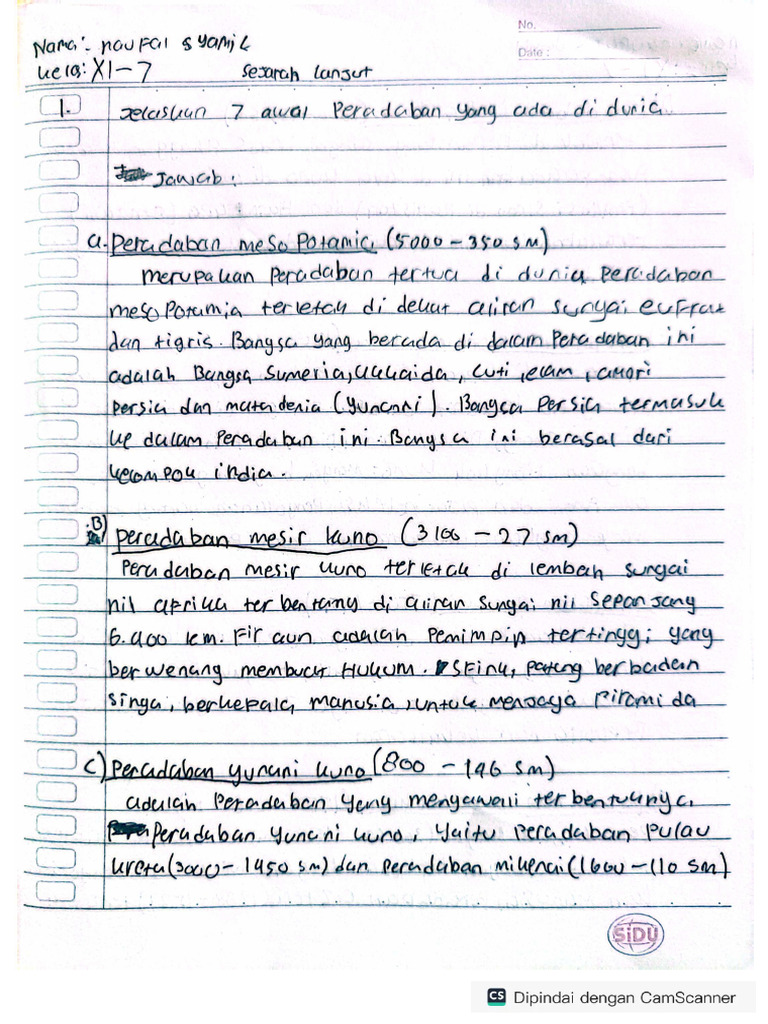 No.
Nama: naufal syamil
Date:
kelas: XI-7 Sejarah lanjut
1. Jelaskan 7 awal Peradaban yang ada di dunia
Jawab:
a. Peradaban mesopotamia (5000 - 350 SM)
merupakan Peradaban tertua di dunia Peradaban
mesopotamia terletak di dekat aliran sungai euffrat
dan tigris. Bangsa yang berada di dalam Peradaban ini
adalah Bangsa Sumeria, akkaida, Cuti, elam, amori
Persia dan matadenia (yunanni). Bangsa Persia termasuk
ke dalam Peradaban ini. Bangsa ini berasal dari
kelompok india.
B) Peradaban mesir kuno (3100 - 27 SM)
Peradaban mesir kuno terletak di lembah sungai
nil aprika terbentang di aliran sungai nil sepanjang
6.400 km. Fir aun adalah Pemimpin tertinggi yang
berwenang membuat HUKUM. SFink, patung berbadan
Singa, berkepala manusia, untuk menjaga Piramida
C) Peradaban yunani kuno (800 - 146 SM)
adalah Peradaban yang mengawali terbentuknya
Peradaban Yunani kuno, Yaitu Peradaban Pulau
kreta (3000 - 1450 SM) dan Peradaban mikenai (1600 - 110 SM)
SiDU
CS Dipindai dengan CamScanner